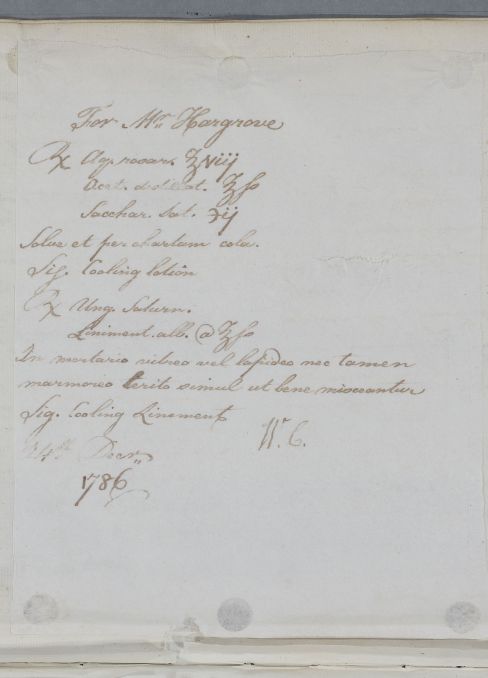 For Mr. Hargrove
℞ Aq. rosar. ℥viij
Acet. distillat. ℥ſs
Sacchar. Sat. ℈ij
Solve et per chartam cola.
Sig. Cooling lotion
℞ Ung. Saturn.
Liniment. alb. @ ℥ſs
In mortario vitreo vel lapideo nec tamen
marmoreo terito simul ut bene misceantur
Sig. Cooling Liniment
W. C.
24th Decr.
1786